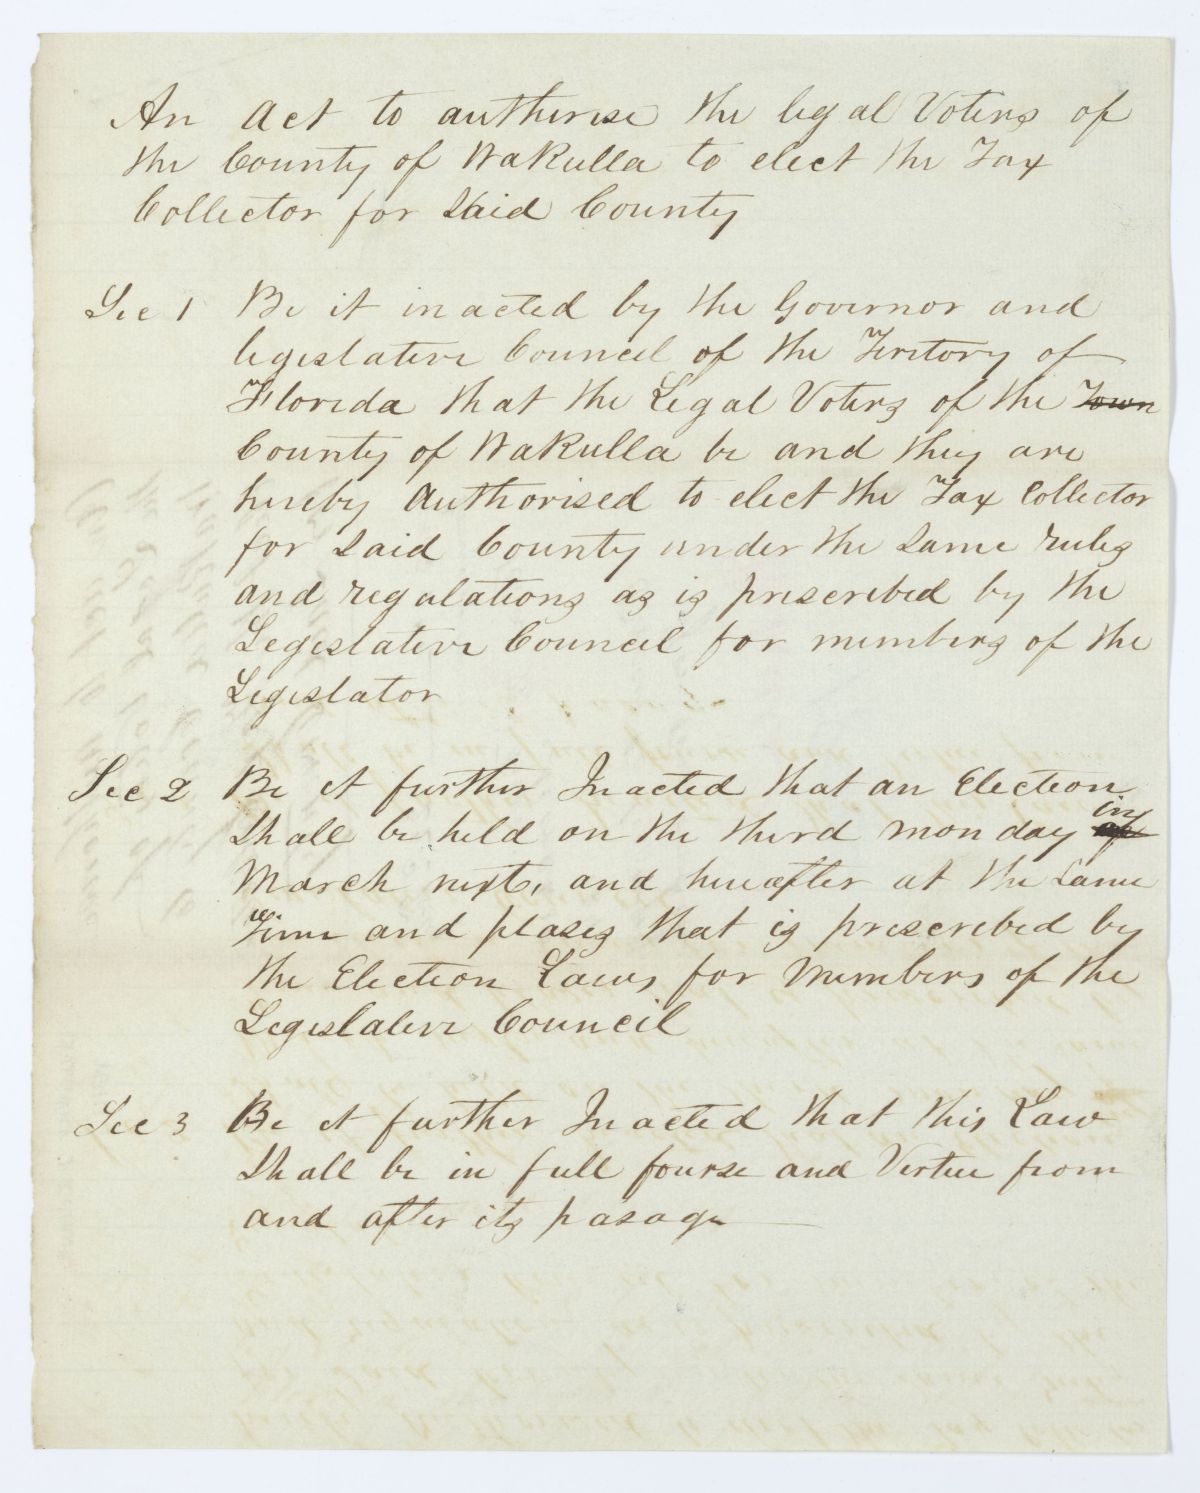 An act to autherise the legal Voters of
the County of Wakulla to elect the Tax
Collector for Said County
Sec 1 Be it inacted by the Governor and
legislative Council of the Teritory of
Florida that the Legal Voters of the Town
County of Wakulla be and they are
hereby Authorised to elect the Tax Collector
for Said County under the Same rules
and regulations as is prescribed by the
Legislative Council for members of the
Legislator
Sec 2 Be it further Inacted that an Election
Shall be held on the third monday of in
March next, and hereafter at the Same
Time and plases that is prescribed by
the Election Laws for Members of the
Legislative Council
Sec 3 Be it further Inacted that this Law
Shall be in full fourse and Vertue from
and after its pasage